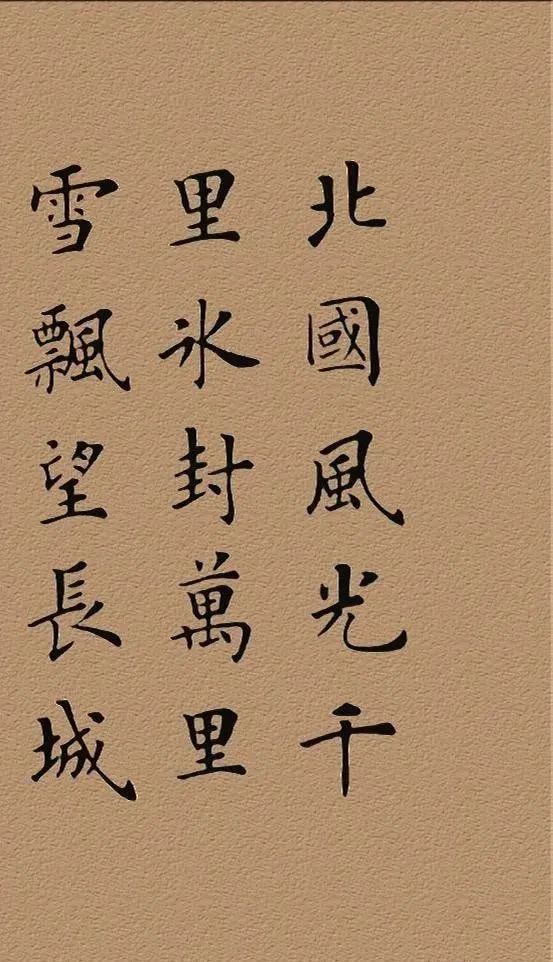 北國風光千
里氷封萬里
雪飄望長城